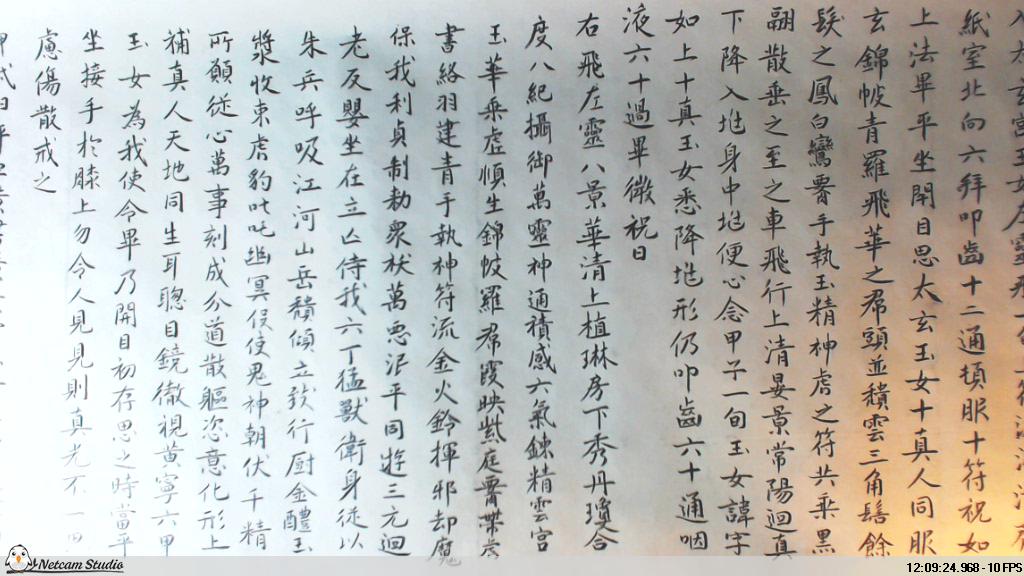 紙室北向六拜叩齒十二通頓服十符祝如
上法畢平坐閉目思太玄玉女十真人同服
玄錦帔青羅飛華之帬頭並積雲三角髻餘
髮之鳳白鸞
手執玉精神虎之符共乘黑
翮散垂之至之車飛行上清晏景常陽迴真
下降入地身中地便心念甲子一旬玉女諱字
如上十真玉女悉降地形仍叩齒六十通咽
液六十過畢微祝曰
右飛左靈八景華清上植琳房下秀丹瓊合
度八紀攝御萬靈神通積感六氣鍊精雲宮
玉華乘虛順生錦帔羅帬霞映紫庭
書絡羽建青手執神符流金火鈴揮邪却魔
保我利貞制勅眾袄萬惡泯平同遊三元迴
老反嬰坐在立亾侍我六丁猛獸衛身從以
朱兵呼吸江河山岳積傾立致行厨金醴玉
漿收束虎豹吒吒幽冥役使鬼神朝伏千精
所願從心萬事剋成分道散軀恣意化形上
補真人天地同生耳聰目鏡徹視黃寧六甲
玉女為我使令畢乃開目初存思之時當平
坐接手於膝上勿令人見見則真光不一
慮傷散戒之
Netcam Studio
12:09:24.968 - 10 FPS